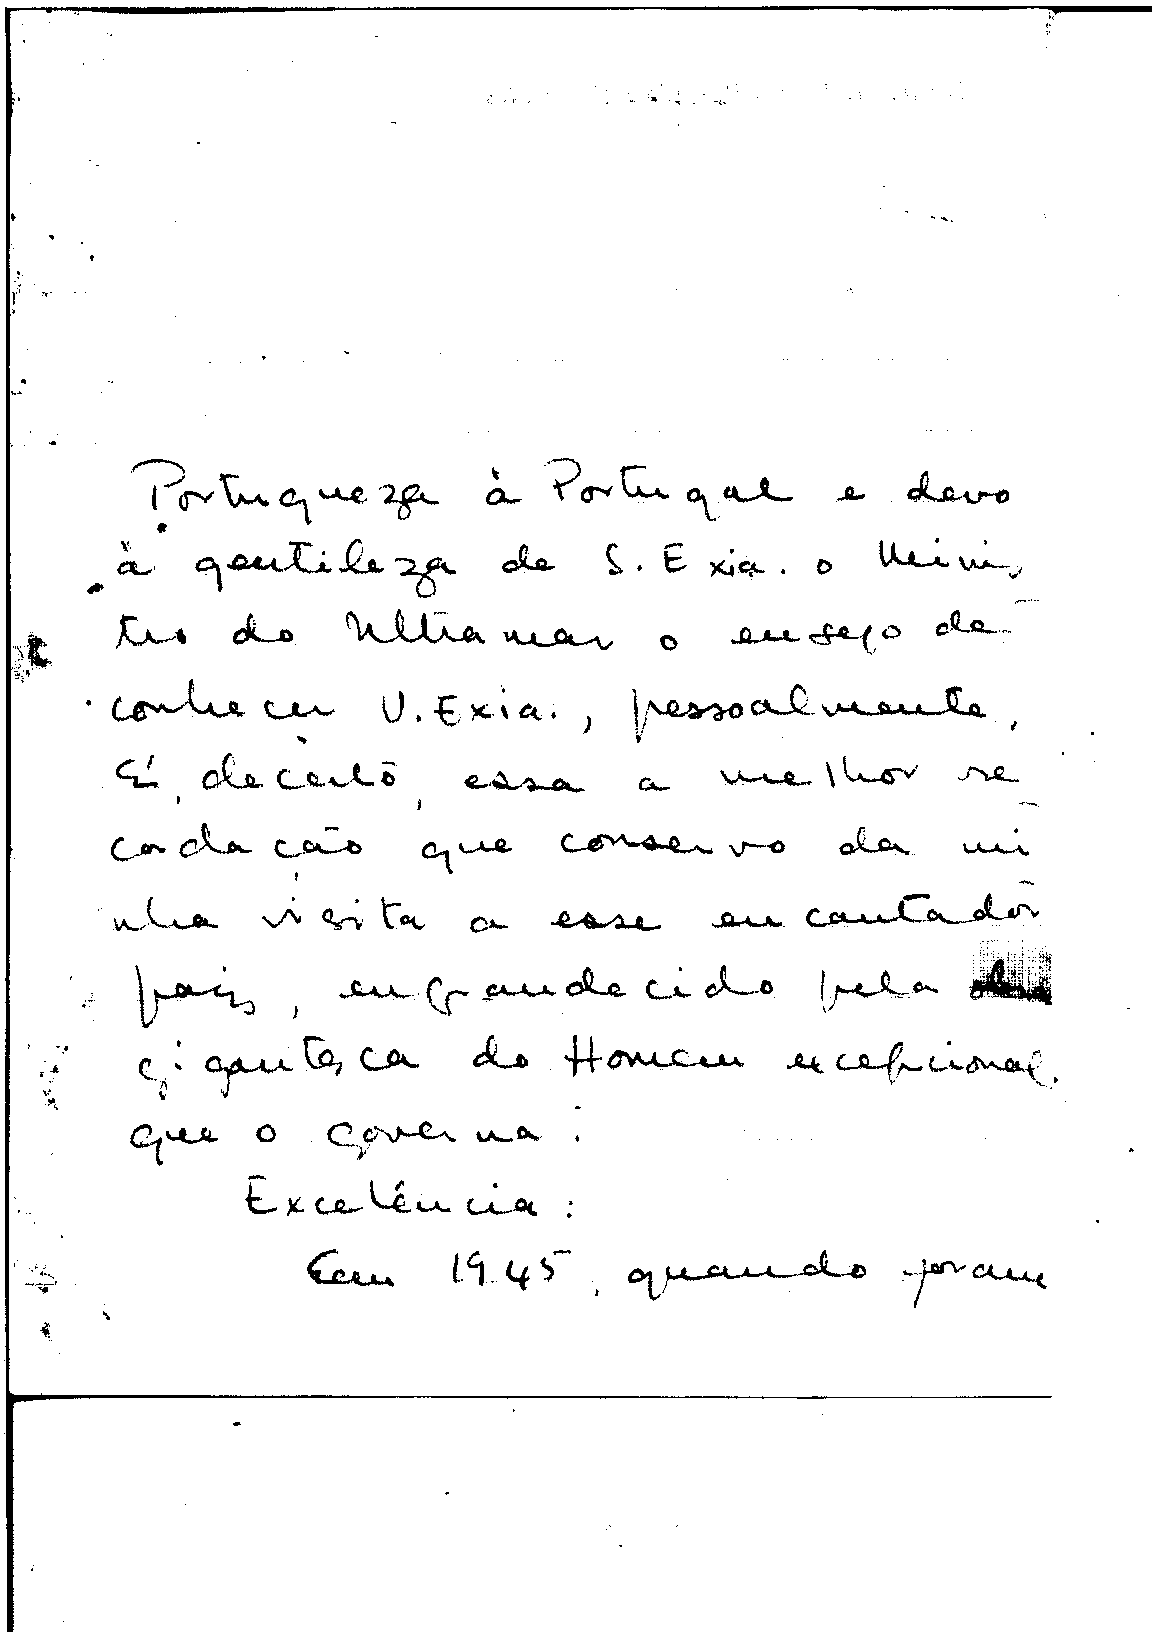 Portugueza à Portugal e devo
à gentileza de S. Exia. o Minis
tro do Ultramar o ensejo de
conhecer V. Exia., pessoalmente.
É, de certo, essa a melhor re
cordação que conservo da mi
nha visita a esse encantador
paiz, engrandecido pela obra
gigantesca do Homem excepcional
que o governa.
Excelência:
Em 1945, quando foram